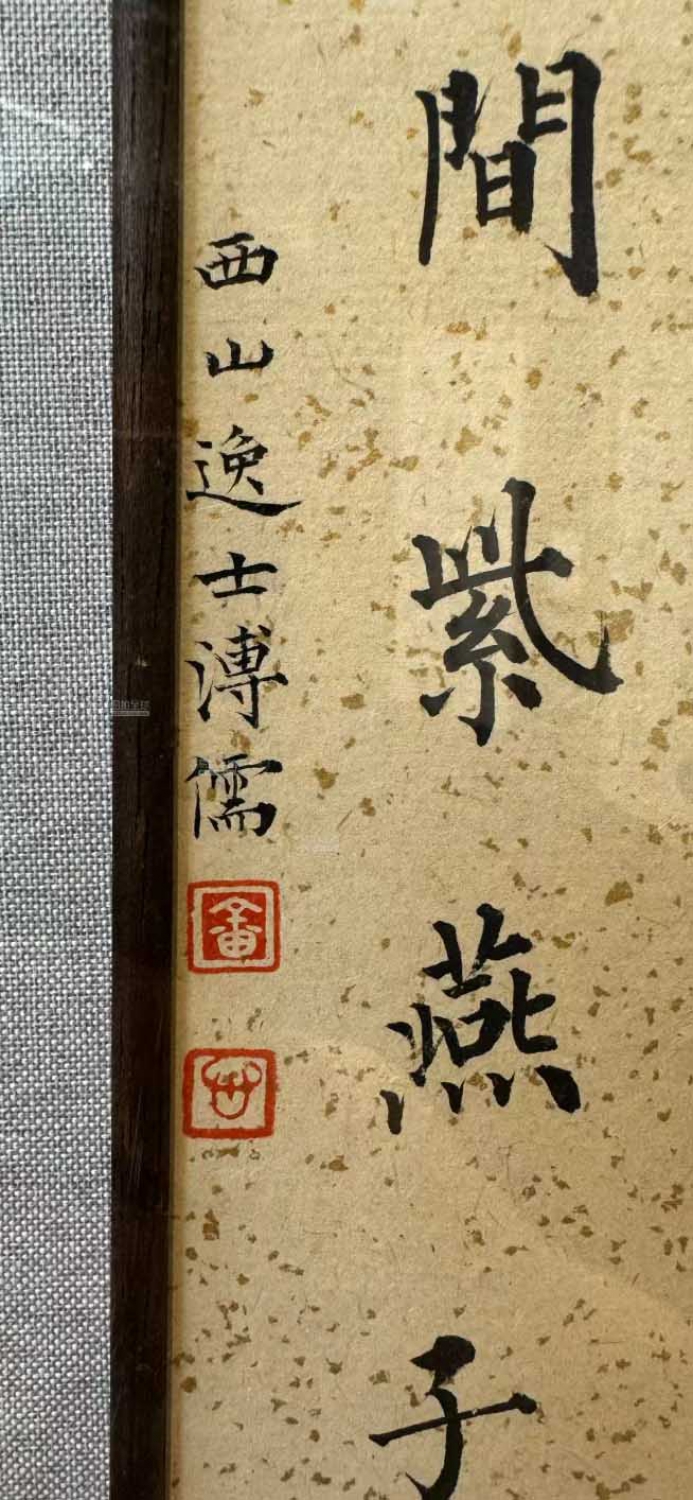 間紫燕子
西山逸士溥儒